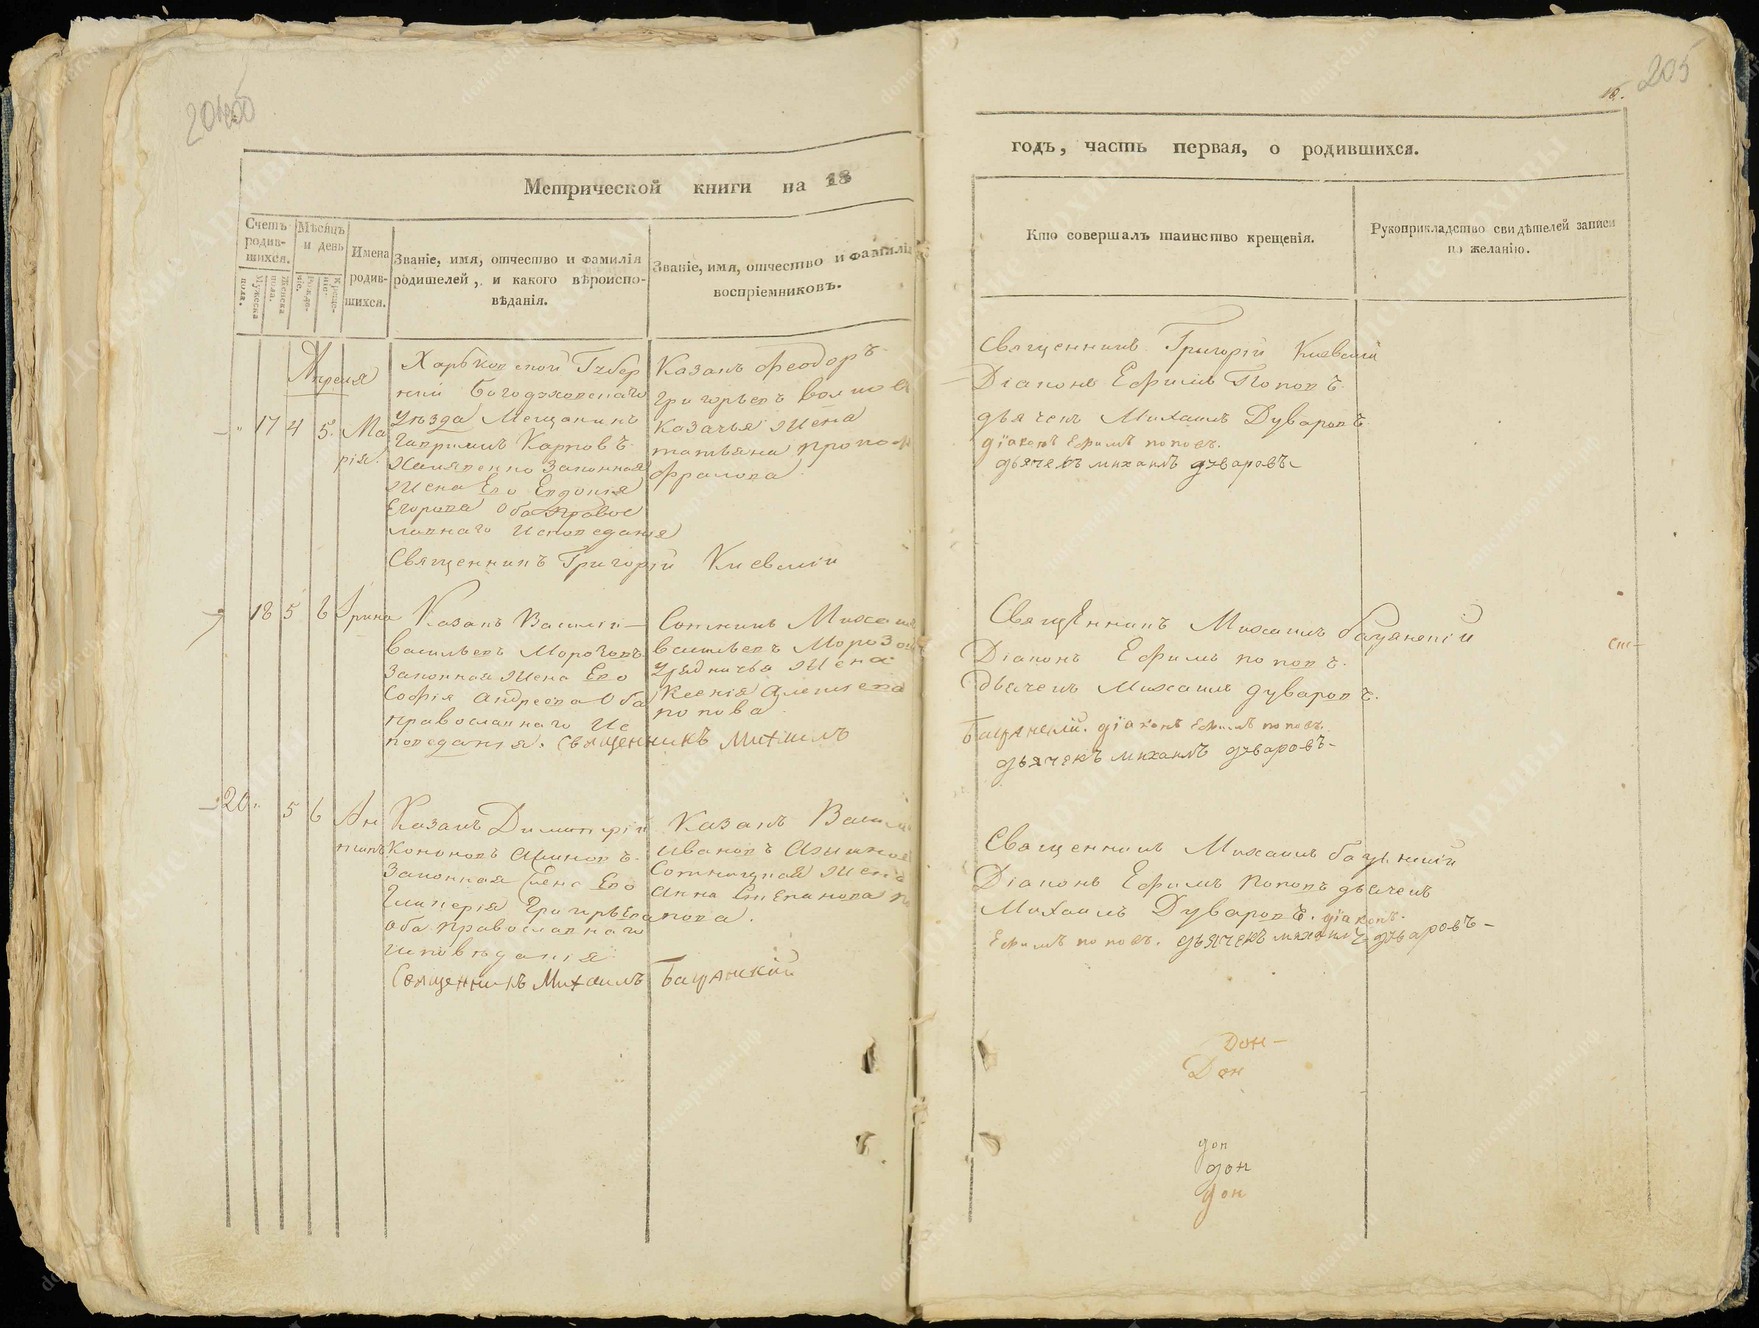 205
18.
Метрической книги на 18
годъ, часть первая, о родившихся.
Счетъ родившихся.
Мужеска пола.
Женска пола.
Мѣсяцъ и день
Рожденіе.
Крещеніе.
Имена родившихся.
Званіе, имя, отчество и фамилія
родителей, и какого вѣроиспо-
вѣданія.
Званіе, имя, отчество и фамилія
воспріемниковъ.
Кто совершалъ таинство крещенія.
Рукоприкладство свидѣтелей записи
по желанію.
Апреля
17 4 5 Ма
рія
Харьковской Губер
ніи Богодуховскаго
Уѣзда Мещанинъ
Гавриилъ Карповъ
законная
Жена Его Евдокія
Егорова Оба Правос
лавнаго Исповеданія
Священникъ Григорій Киевскій
Казакъ Феодоръ
Григорьевъ
Казачья Жена
татьяна
фралова
Священникъ Григорій Киевскій
Діаконъ Ефимъ Поповъ
дьячекъ Михаилъ Дуваровъ
діаконъ Ефимъ поповъ.
дьячекъ михаилъ дуваровъ
18 5 6 Ирина
Казакъ Василій
Васильевъ Морозовъ
Законная Жена Его
Софія Андреева Оба
православнаго Ис
поведанія. Священникъ Михаилъ
Сотникъ Михаилъ
Васильевъ Морозовъ
Урядничья Жена
Ксенія Алексеева
попова
Священникъ Михаилъ Бацанский
Діаконъ Ефимъ поповъ.
Дьячекъ Михаилъ дуваровъ.
Бацанский. діаконъ Ефимъ поповъ.
дьячекъ михаилъ дуваровъ
20 5 6 Ан
типъ
Казакъ Димитрій
Кононовъ
Законная Жена Его
Гликерія Григорьева
оба православнаго
исповѣданія
Священникъ Михаилъ Бацанский
Казакъ Василій
Ивановъ
Сотницкая Жена
Анна Степанова по
пова.
Священникъ Михаилъ
Діаконъ Ефимъ Поповъ дьячекъ
Михаилъ Дуваровъ. діаконъ.
Ефимъ поповъ. дьячекъ михаилъ дуваровъ
Дон
Дон
дон
дон
дон